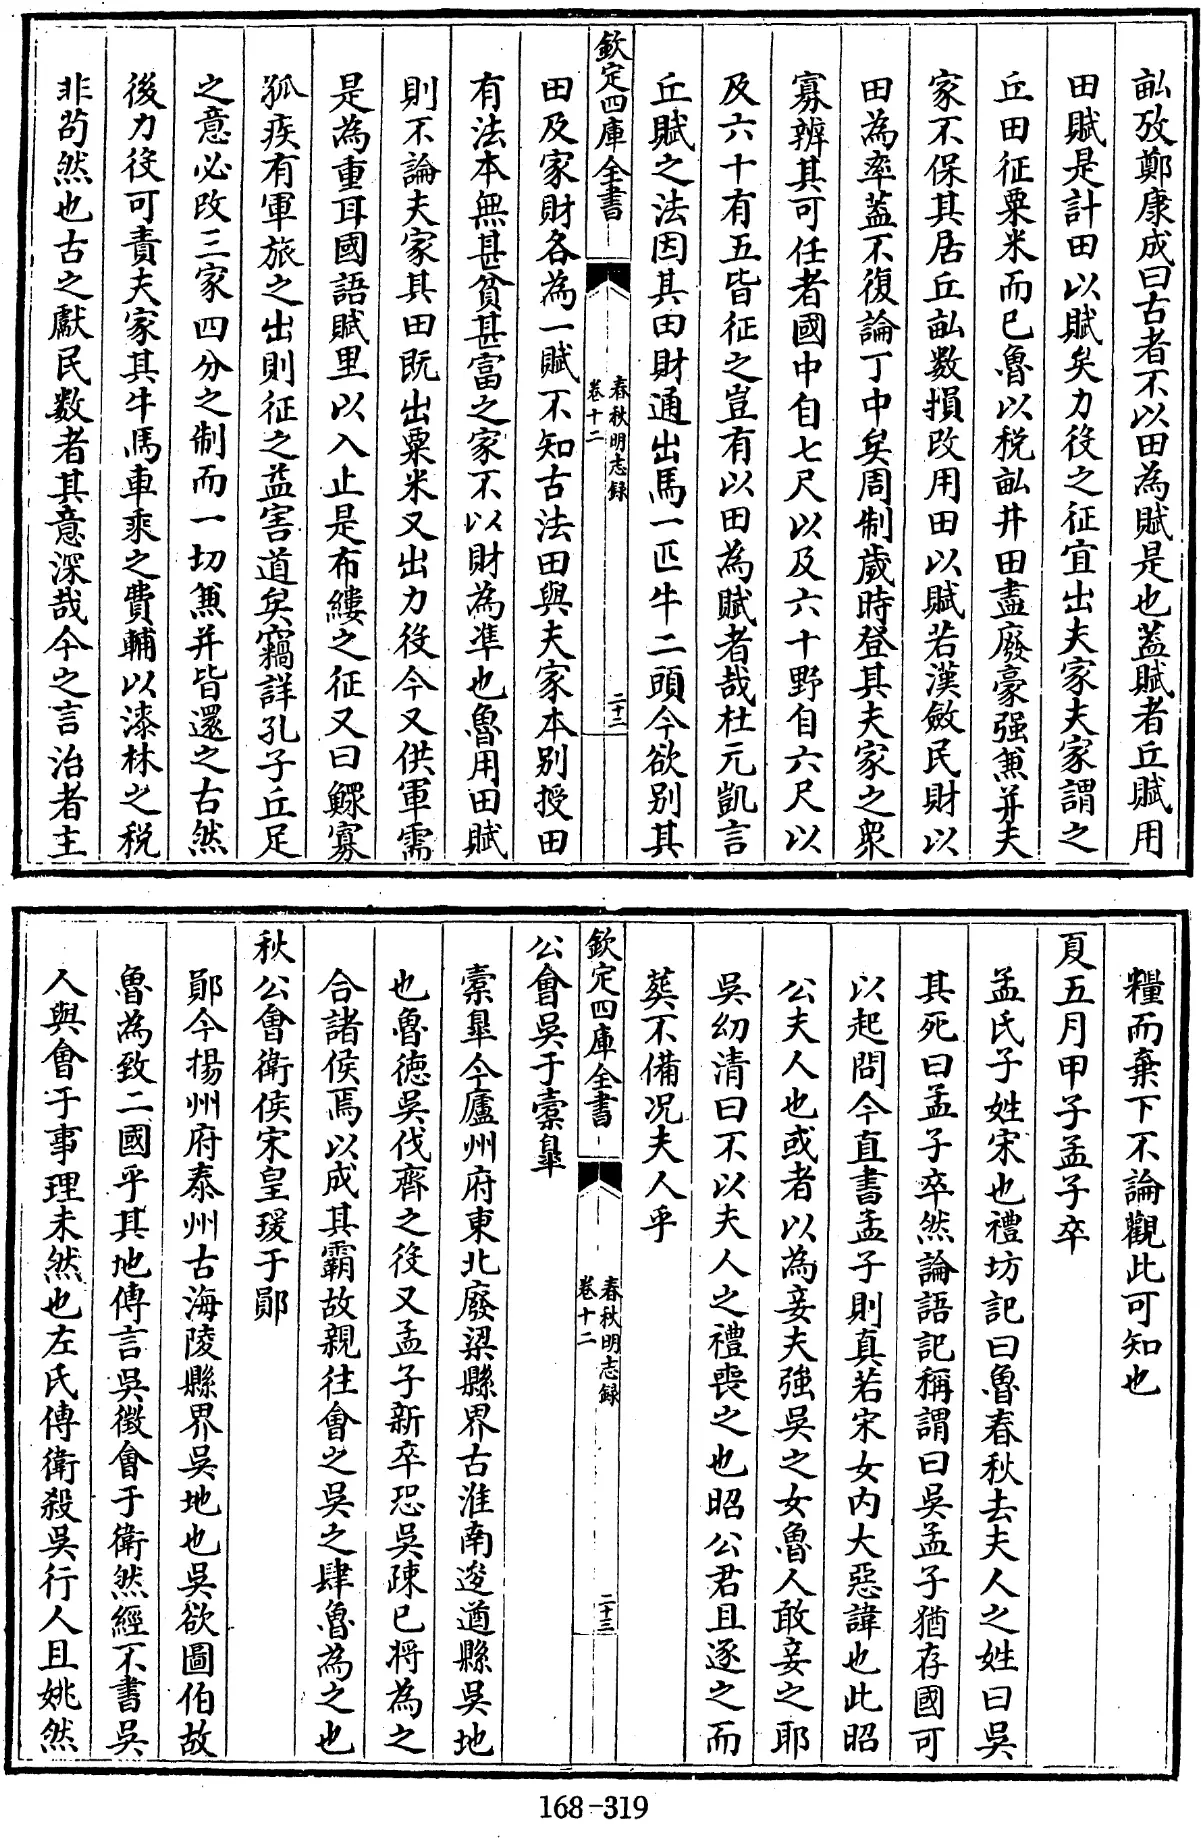 畝攷鄭康成曰古者不以田為賦是也蓋賦者丘賦用
田賦是計田以賦矣力役之征宜出夫家夫家謂之
丘田征粟米而已魯以税畝井田盡廢豪强兼并夫
家不保其居丘畝数損改用田以賦若漢斂民財以
田為率蓋不復論丁中矣周制歲時登其夫家之衆
寡辨其可任者國中自七尺以及六十野自六尺以
及六十有五皆征之豈有以田為賦者哉杜元凱言
丘賦之法因其田財通出馬一匹牛二頭今欲别其
欽定四庫全書
春秋明志録
卷十二
二十二
田及家財各為一賦不知古法田與夫家本别授田
有法本無甚貧甚富之家不以財為準也魯用田賦
則不論夫家其田既出粟米又出力役今又供軍需
是為重耳國語賦里以入止是布縷之征又曰鰥寡
孤疾有軍旅之出則征之益害道矣竊詳孔子丘足
之意必改三家四分之制而一切兼并皆還之古然
後力役可責夫家其牛馬車乘之費輔以漆林之税
非苟然也古之獻民数者其意深哉今之言治者主
糧而棄下不論觀此可知也
夏五月甲子孟子卒
孟氏子姓宋也禮坊記曰魯春秋去夫人之姓曰吳
其死曰孟子卒然論語記稱謂曰吳孟子猶存國可
以起問今直書孟子則真若宋女内大惡諱也此昭
公夫人也或者以為妾夫強吳之女魯人敢妾之耶
吳幼清曰不以夫人之禮喪之也昭公君且逐之而
葬不備况夫人乎
欽定四庫全書
春秋明志録
卷十二
二十三
公會吳于橐臯
橐臯今廬州府東北廢梁縣界古淮南逡遒縣吳地
也魯德吳伐齊之役又孟子新卒恐吳疎已将為之
合諸侯焉以成其霸故親往會之吳之肆魯為之也
秋公會衛侯宋皇瑗于鄖
鄖今揚州府泰州古海陵縣界吳地也吳欲圖伯故
魯為致二國乎其地傳言吳徵會于衛然經不書吳
人與會于事理未然也左氏傳衛殺吳行人且姚然
168-319